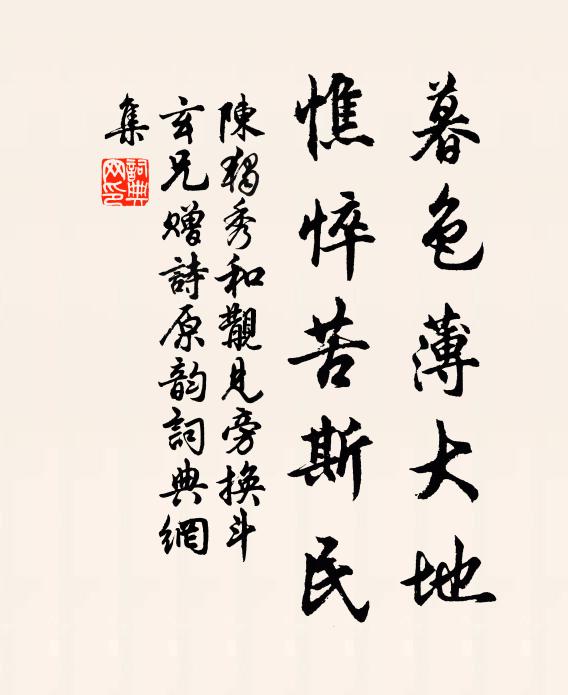 暮色薄大地
憔悴苦斯民
陳獨秀和觀見旁換斗
玄兄贈詩原韵詞典網
集
詞典网印